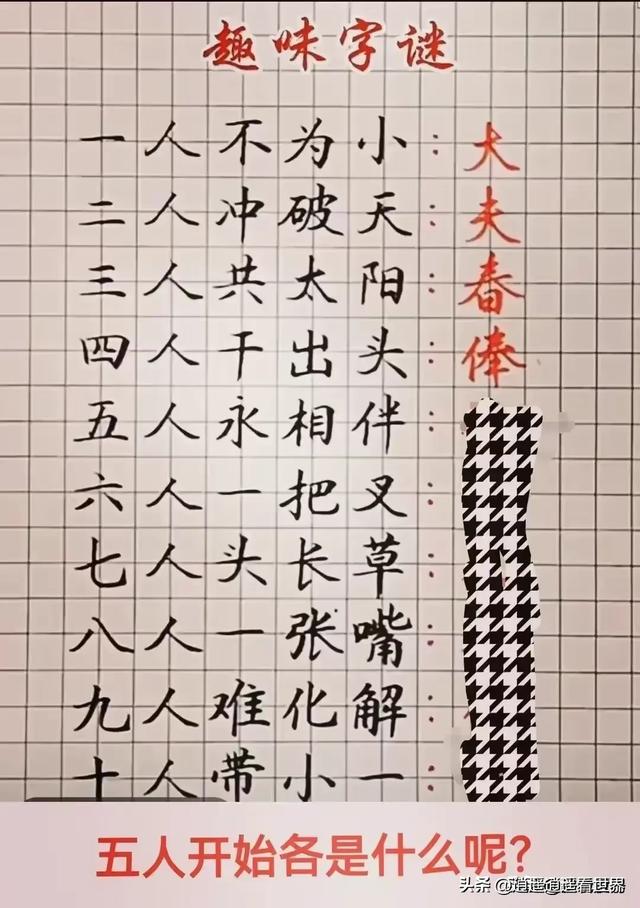 趣味字谜
一人不为小：大
二人冲破天：夫
三人共太阳：春
四人干出头：俸
五人永相伴：
六人一把叉：
七人头长草：
八人一张嘴：
九人难化解：
十人带小一：
五人开始各是什么呢?
头条 @逍遥逍遥看世界